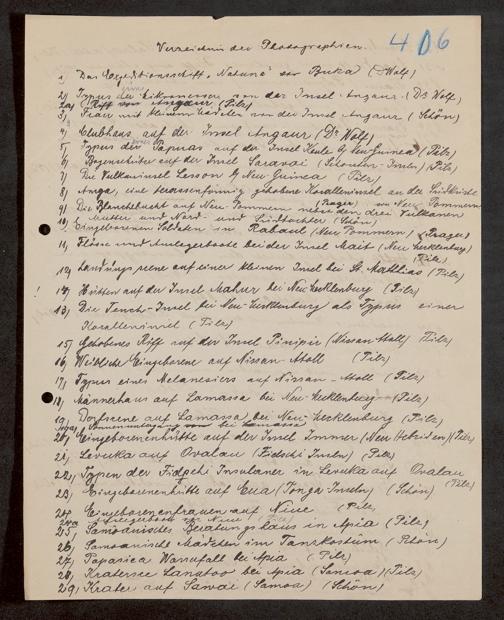 Verzeichnis der Photographien.
406
1, Das Expeditionsschiff „Natuna" vor Buka (Wolf)
2, Typus eines Mikronesiers von der Insel Angaur (Dr Wolf)
2a, Riff von Angaur (Pilz)
3, Frau mit kleinem Mädchen von der Insel Angaur (Schön)
4, Clubhaus auf der Insel Angaur (Dr. Wolf)
5, Typus der Papuas auf der Insel Keule b/ Neu Guinea (Pilz)
6, Bogenschütze auf der Insel Sarasai (Schouten-Inseln) (Pilz)
7, Die Vulkaninsel Lesson b/ Neu Guinea (Pilz)
8, eine terrassenförmig gehobene Koralleninsel an der Südküste von Neu Pommern
9, Die Blanchebucht auf Neu-Pommern (Prager) mit den drei Vulkanen
Mutter und Nord- und Südtochter (Schön)
10, Eingeborenen Soldaten in Rabaul (Neu Pommern) (Prager)
11, Flösse und Auslegeboote bei der Insel Mait (Neu Mecklenburg)
(Pilz)
12, Landungsscene auf einer kleinen Insel bei St. Matthias (Pilz)
13, Hütten auf der Insel Mahur bei Neu Mecklenburg (Pilz)
Die Tench-Insel bei Neu-Mecklenburg als Typus einer
Koralleninsel (Pilz)
15, Gehobenes Riff auf der Insel Pinipir (Nissan Atoll) Pilz)
16, Weibliche Eingeborene auf Nissan-Atoll (Pilz)
17, Typus eines Melanesiers auf Nissan-Atoll (Pilz)
18, Männerhaus auf Lamassa bei Neu-Mecklenburg (Pilz)
19, Dorfscene auf Lamassa bei Neu-Mecklenburg (Pilz)
bei Lamassa
20, Eingeborenenhütte auf der Insel Immer (Neu Hebriden) (Pilz)
21, Levuka auf Ovalau (Fidschi Inseln) (Pilz)
22, Typen der Fidschi Insulaner in Levuka auf Ovalau
(Pilz)
23, Eingeborenenhütte auf Eua (Tonga Inseln) (Schön)
24, Eingeborenenfrauen auf Niue (Pilz)
24a, Auslegeboote Niue
25, Samoanisches Beratungshaus in Apia (Pilz)
26, Samoanische Mädchen im Tanzkostüm (Schön)
27, Papasica Wasserfall bei Apia (Pilz)
28, Kratersee Lanutoo bei Apia (Samoa) (Pilz)
29, Krater auf Sawai (Samoa) (Schön)